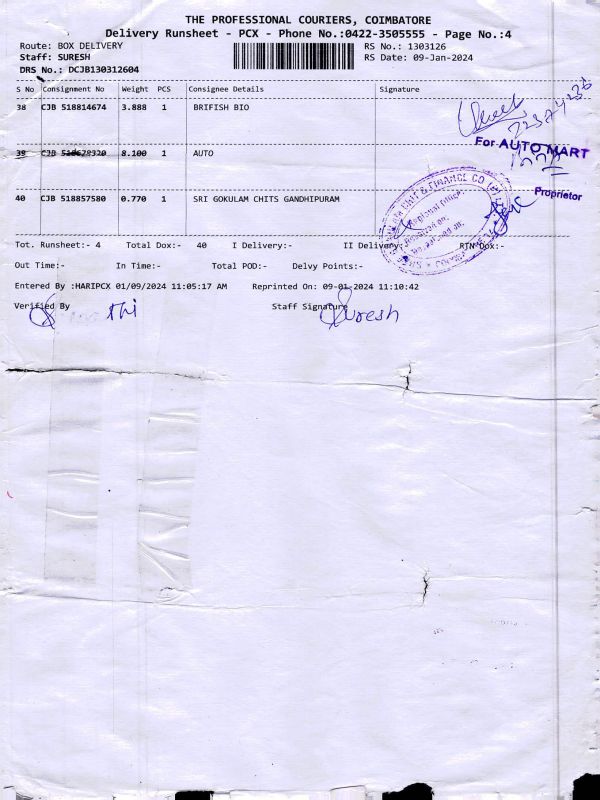 THE PROFESSIONAL COURIERS, COIMBATORE
Delivery Runsheet - PCX - Phone No.:0422-3505555 - Page No.:4
Route: BOX DELIVERY
RS No.: 1303126
Staff: SURESH
RS Date: 09-Jan-2024
DRS No.: DCJB130312604
S No Consignment No Weight PCS Consignee Details Signature
38 CJB 518814674 3.888 1 BRIFISH BIO
For AUTO MART
39 CJB 8.100 1 AUTO
Proprietor
40 CJB 518857580 0.770 1 SRI GOKULAM CHITS GANDHIPURAM
CHIT & FINANCE CO
Regional Office
Tot. Runsheet:- 4 Total Dox:- 40 I Delivery:- II Delivery:- RTN Dox:-
Out Time:- In Time:- Total POD:- Delvy Points:-
Entered By :HARIPCX 01/09/2024 11:05:17 AM Reprinted On: 09-01-2024 11:10:42
Verified By Staff Signature
Suresh